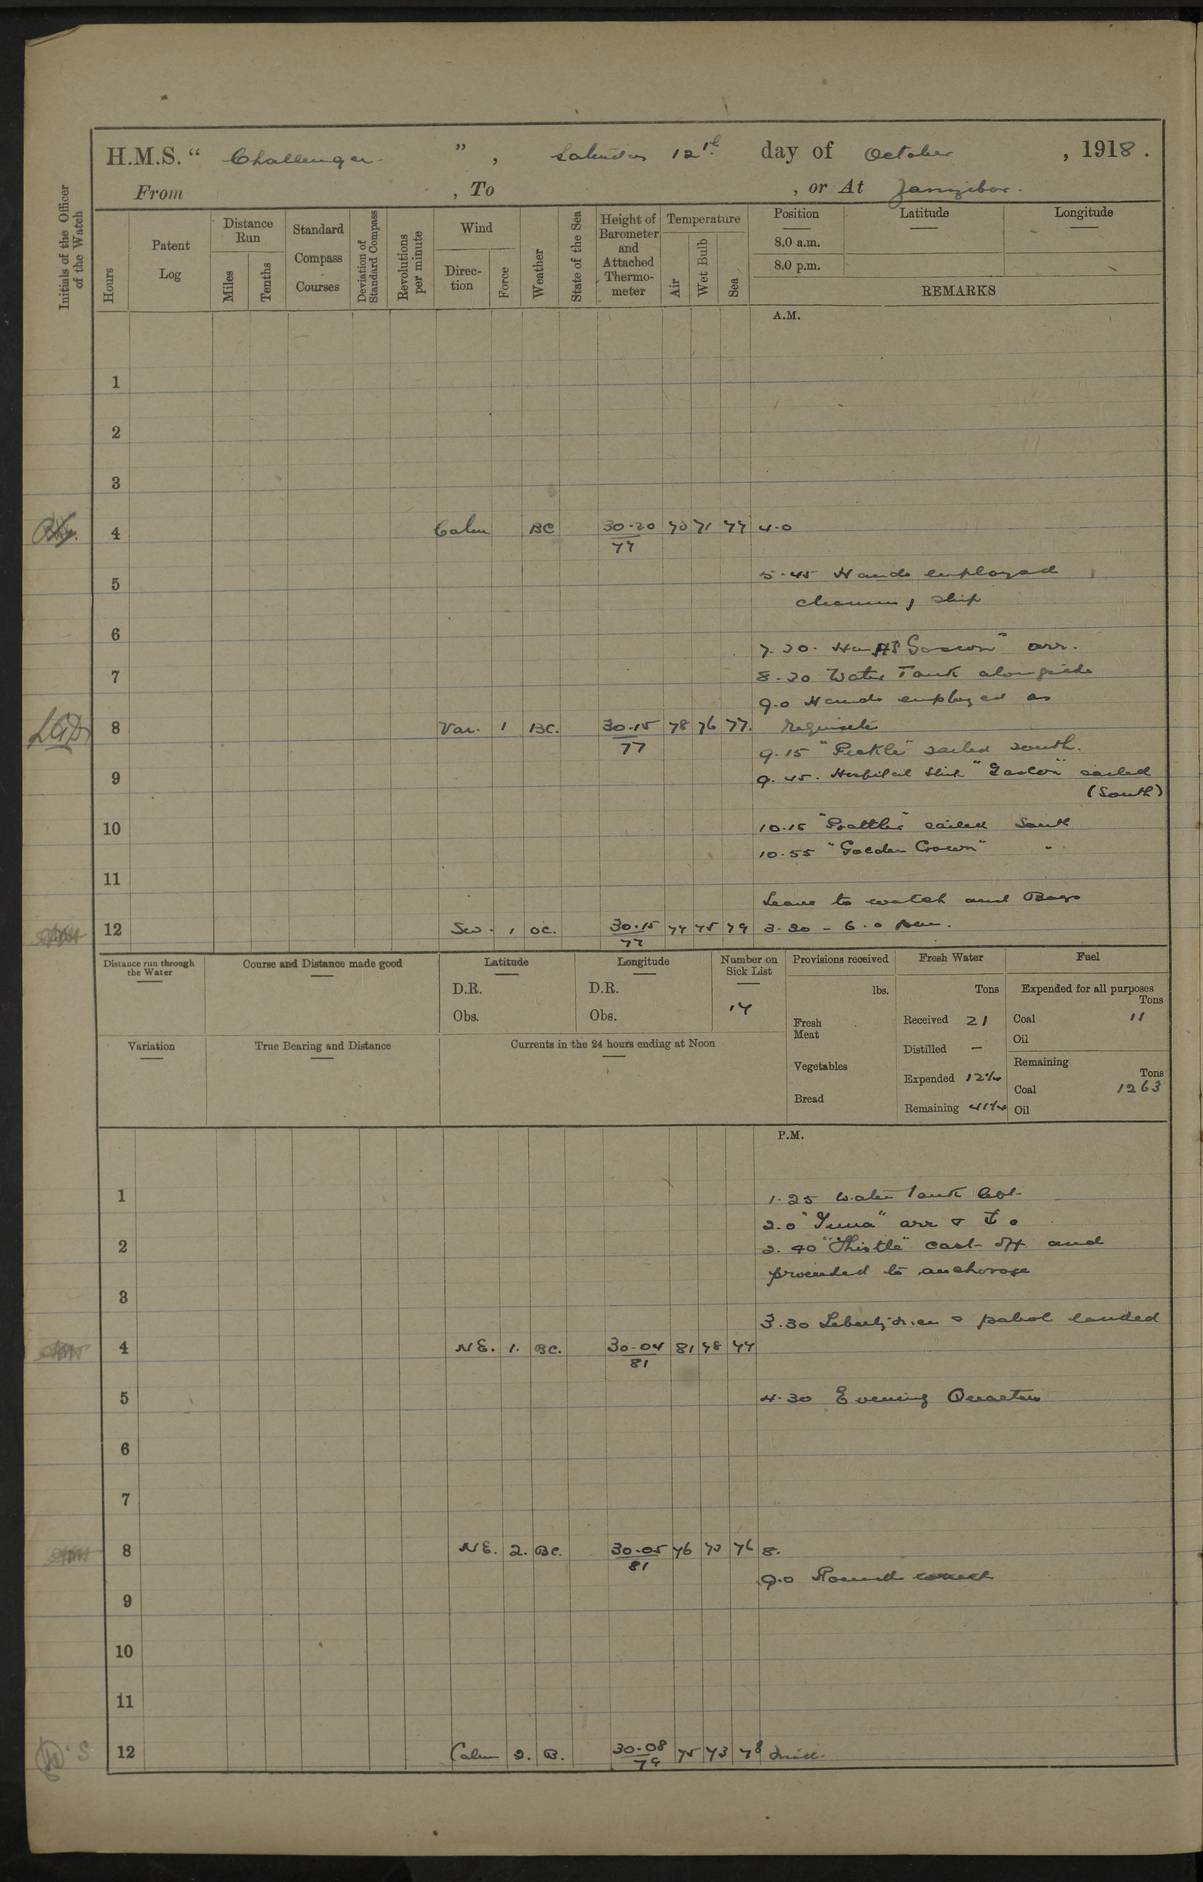 H.M.S. " Challenger. " , Saturday 12th. day of October , 1918.
From , To , or At Zanzibar.
Initials of the Officer of the Watch
Hours
Patent Log
Distance Run
Miles
Tenths
Standard Compass Courses
Deviation of Standard Compass
Revolutions per minute
Wind
Direc-tion
Force
Weather
State of the Sea
Height of Barometer and Attached Thermo-meter
Temperature
Air
Wet Bulb
Sea
Position
8.0 a.m.
8.0 p.m.
Latitude
Longitude
REMARKS
A.M.
1
2
3
4 Calm BC 30.20 71 77 4.0
77
5 5.45 Hands employed
cleaning ship
6
7.20. arr.
7 8.20 Water Tank alongside
9.0 Hands employed as
8 Var. 1 BC. 30.15 78 76 77. requisite
77
9.15 "Pickle" sailed south.
9 9.45. Hospital Ship "Gascon" sailed
(South)
10 10.15 "Rattler" sailed South
10.55 "Golden Crown" "
11
Leave to watch and Boys
12 SW. 1 OC. 30.15 77 75 79 3.30 - 6.0 pm.
77
Distance run through the Water
Course and Distance made good
Latitude
D.R.
Obs.
Longitude
D.R.
Obs.
Number on Sick List
14
Provisions received
lbs.
Fresh Meat
Vegetables
Bread
Fresh Water
Tons
Received 21
Distilled -
Expended
Remaining
Fuel
Expended for all purposes
Tons
Coal 11
Oil
Remaining
Tons
Coal 1263
Oil
Variation
True Bearing and Distance
Currents in the 24 hours ending at Noon
P.M.
1 1.25 Water Tank left
2.0 arr &
2 2.40 "Thistle" cast off and
proceeded to anchorage
3
3.30 Libertymen & patrol landed
4 NE. 1. BC. 30.04 81 78 77
81
5 4.30 Evening Quarters
6
7
8 NE. 2. BC. 30.05 76 73 76 8.
81
9.0 Rounds correct
9
10
11
12 Calm 2. B. 30.08 75 73 78 Mid.
79